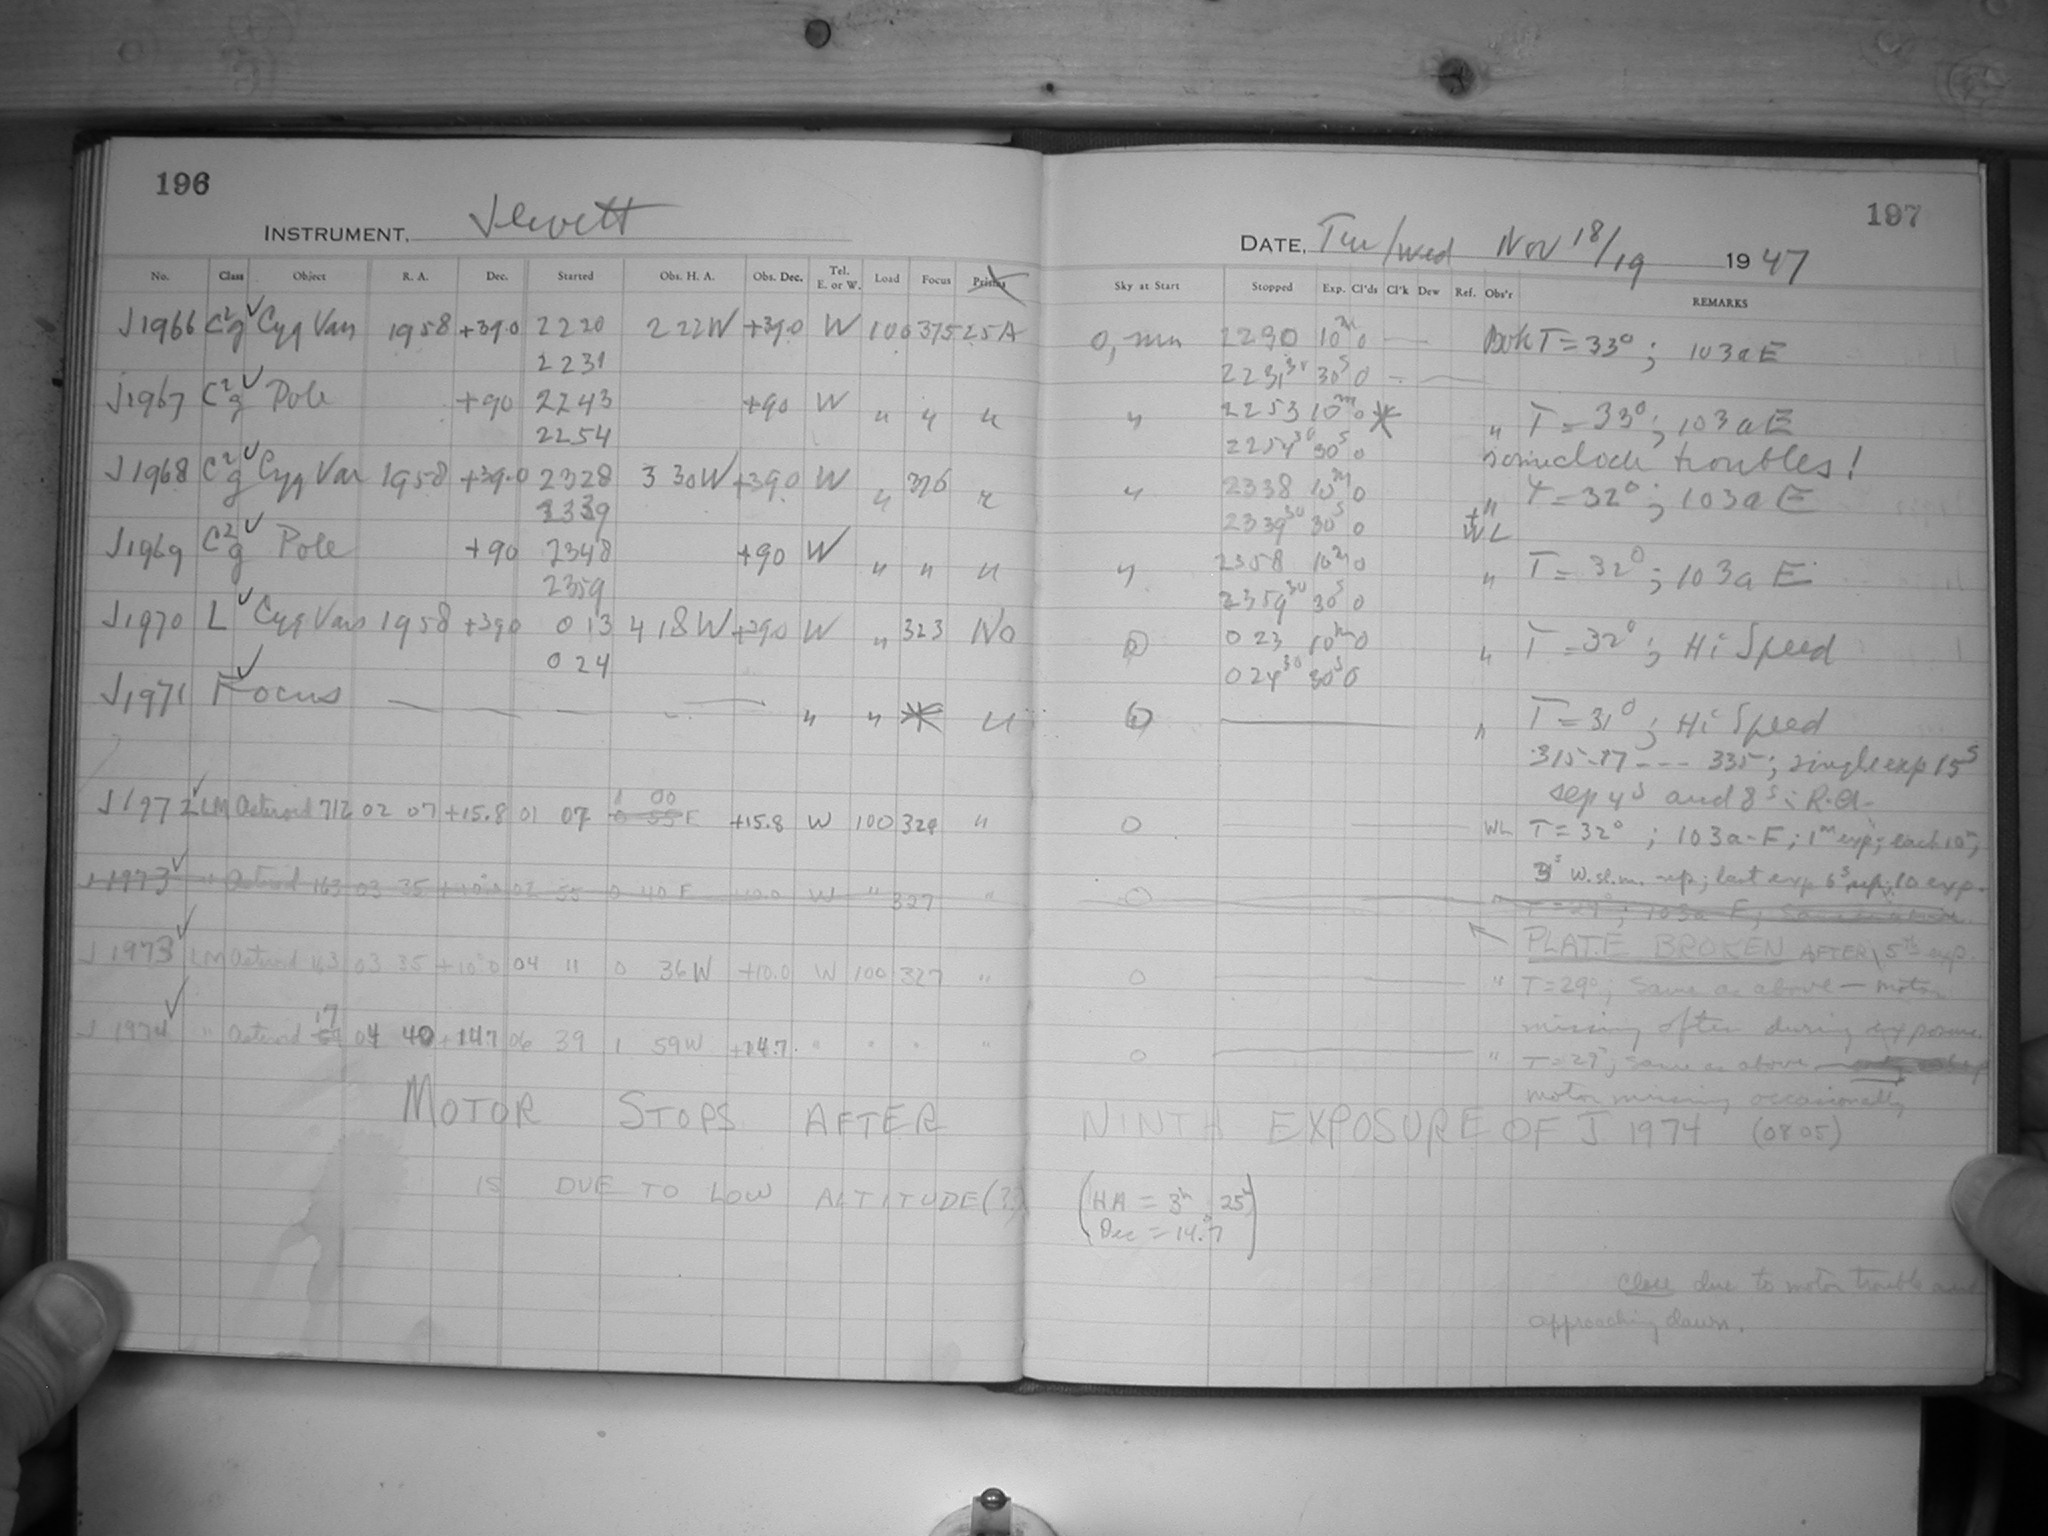 196
INSTRUMENT, Jewett
No. Class Object R. A. Dec. Started Obs. H. A. Obs. Dec. Tel. E. or W. Load Focus Prism
J1966 C2g Cyg Var 1958 +39.0 2220 2 22W +39.0 W 100 375 25A
2231
J1967 C2g Pole +90 2243 +90 W " " "
2254
J1968 C2g Cyg Var 1958 +39.0 2328 3 30W +39.0 W " 376 "
2339
J1969 C2g Pole +90 2348 +90 W " " "
2359
J1970 L Cyg Vars 1958 +390 013 4 18W +390 W " 323 No
024
J1971 Focus " " "
J1972 LM Asteroid 712 02 07 +15.8 01 07 1 00 0 55 E +15.8 W 100 324 "
J1973 " Asteroid 163 03 35 +10.0 02 55 0 40 E +10.0 W " 327 "
J1973 LM Asteroid 163 03 35 +10.0 04 11 0 36W +10.0 W 100 327 "
17
J1974 " Asteroid 04 40 +14.7 06 39 1 59W +14.7 " " " "
MOTOR STOPS AFTER
IS DUE TO LOW ALTITUDE (??)
197
DATE, Tue/Wed Nov 18/19 1947
Sky at Start Stopped Exp. Cl'ds Cl'k Dew Ref. Obs'r REMARKS
2230 10m 0 Bok T=33°; 103aE
2231 30 30s 0
" 2253 10m 0 " T=33°; 103aE
2254 30 30s 0 some clock troubles!
" 2338 10m 0 " T=32°; 103aE
2339 30 30s 0 + WL
" 2358 10m 0 " T=32°; 103aE
2359 30 30s 0
0 23 10m 0 " T=32°; Hi Speed
024 30 30s 0
" T=31°; Hi Speed
315-17 --- 335; single exp 15s
sep 4s and 8s; R.A.
0 WL T=32°; 103a-F; 1m exp; each 10m;
3s W.sl.m. sep; last exp 6s sep; 10 exp.
0 " T=29°; 103a-F; Same as above.
PLATE BROKEN AFTER 5th exp.
0 " T=29°; Same as above — motor
missing often during exposure.
0 " T=29°; Same as above
motor missing occasionally
NINTH EXPOSURE OF J 1974 (0805)
(HA = 3h 25
Dec = 14.°7)
Close due to motor trouble and
approaching dawn.